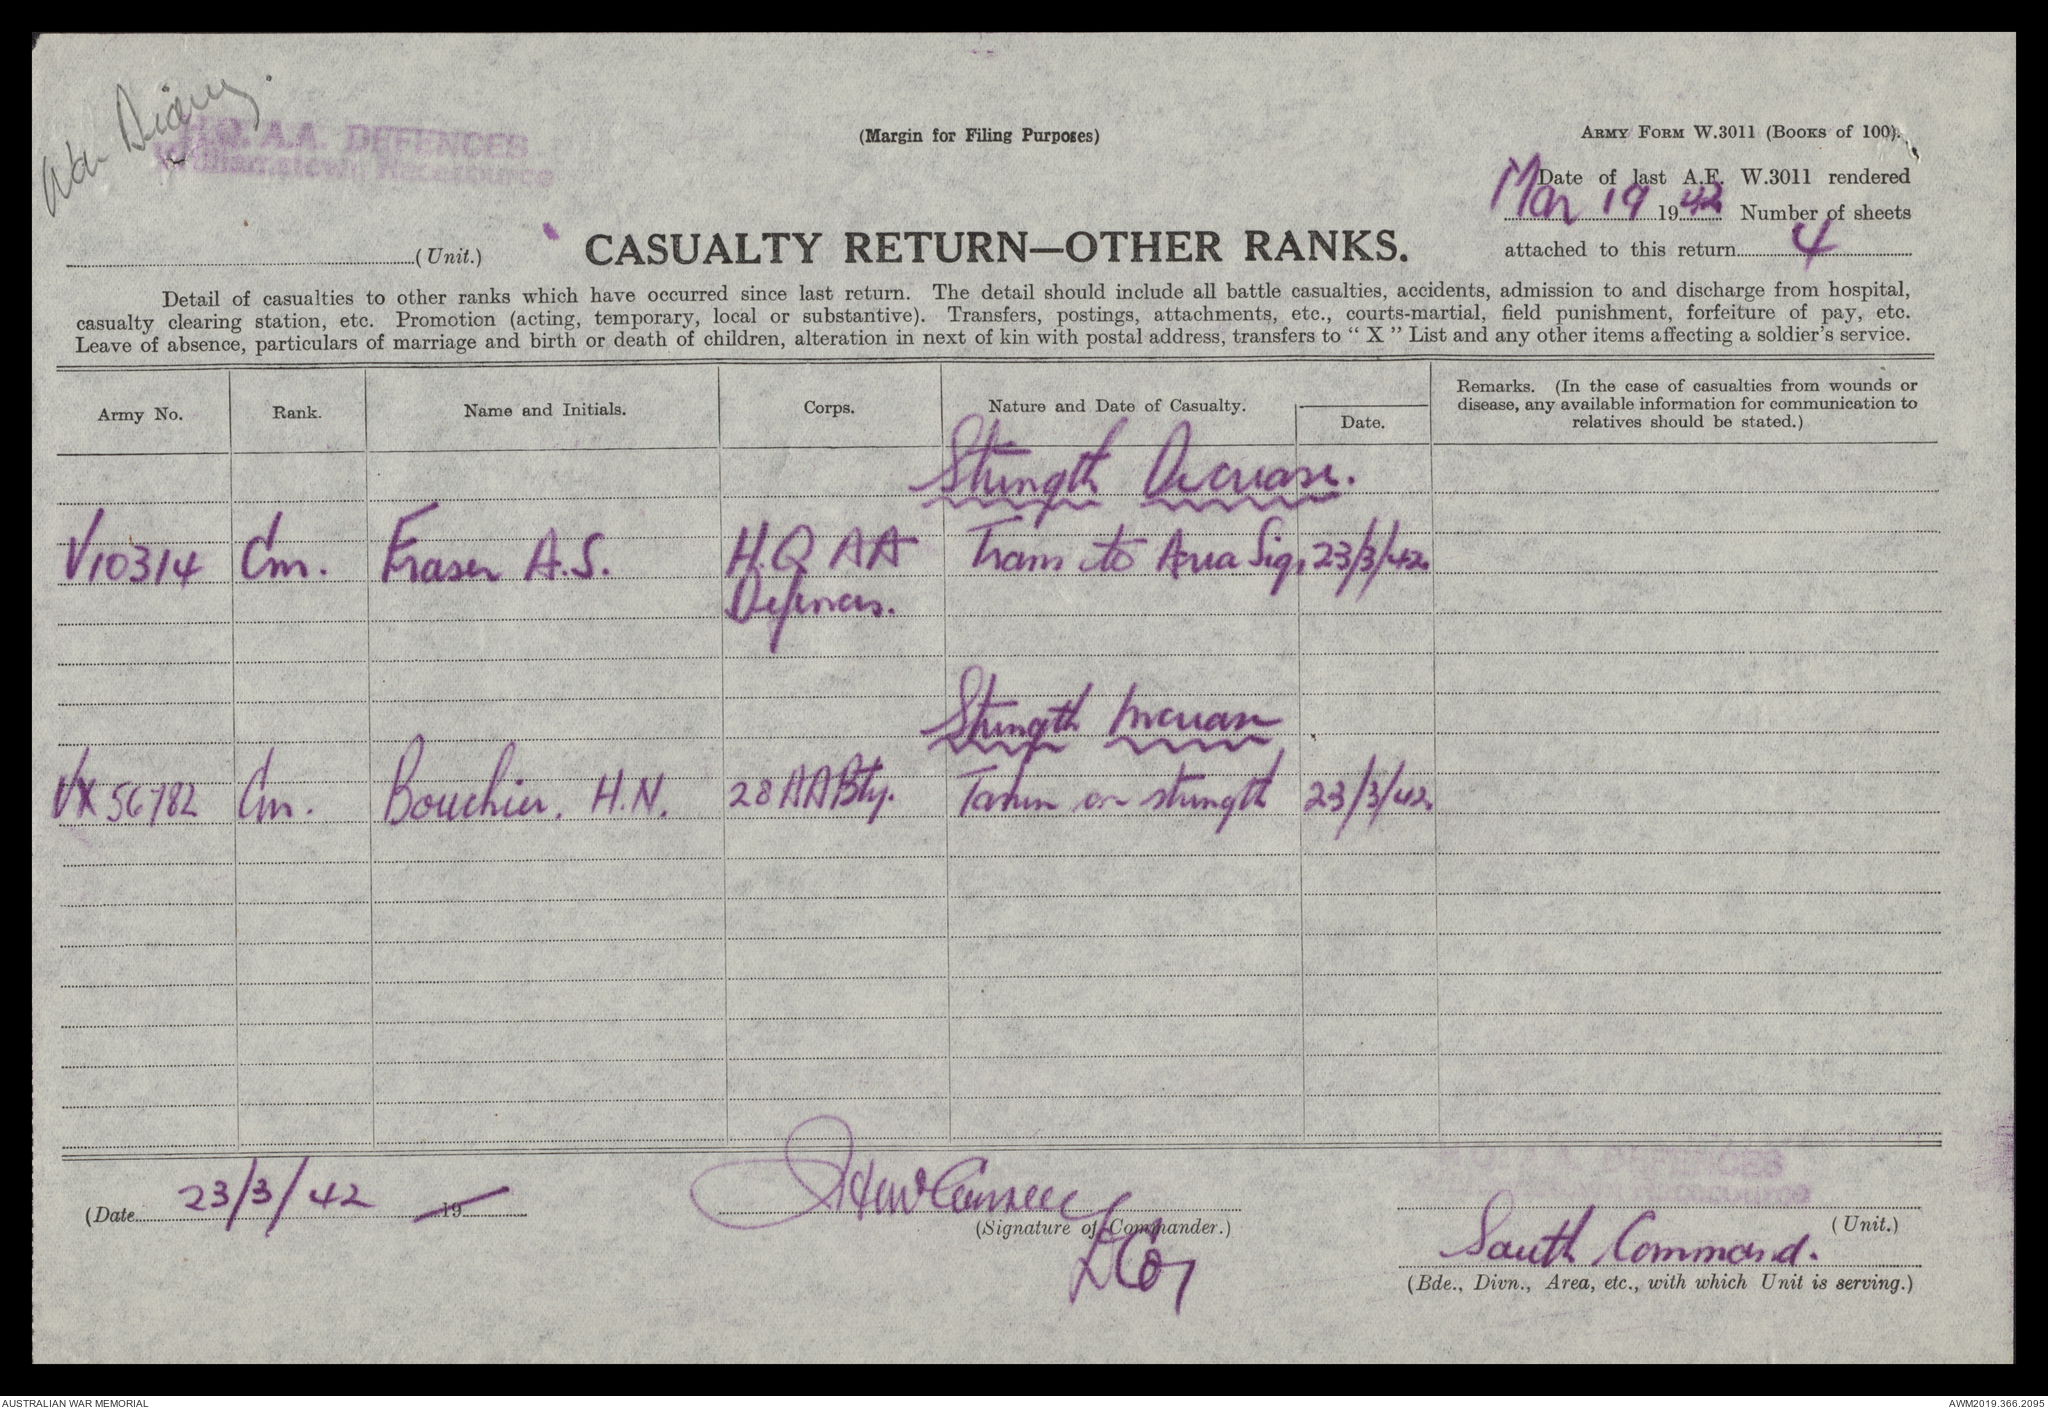 War Diary.
H.Q. A.A. DEFENCES
Williamstown Racecourse
(Margin for Filing Purposes)
ARMY FORM W.3011 (BOOKS OF 100).
Date of last A.F. W.3011 rendered
Mar 19 1942 Number of sheets
attached to this return 4
(Unit.)
CASUALTY RETURN—OTHER RANKS.
Detail of casualties to other ranks which have occurred since last return. The detail should include all battle casualties, accidents, admission to and discharge from hospital,
casualty clearing station, etc. Promotion (acting, temporary, local or substantive). Transfers, postings, attachments, etc., courts-martial, field punishment, forfeiture of pay, etc.
Leave of absence, particulars of marriage and birth or death of children, alteration in next of kin with postal address, transfers to “ X ” List and any other items affecting a soldier's service.
Army No. Rank. Name and Initials. Corps. Nature and Date of Casualty. Date. Remarks. (In the case of casualties from wounds or
disease, any available information for communication to
relatives should be stated.)
Strength Decrease.
V10314 Cm. Fraser A.S. H.Q AA Trans to Area Sig. 23/3/42.
Defences.
Strength Increase
VX 56782 Cm. Bouchier. H.N. 28 AA Bty. Taken on strength 23/3/42.
(Date 23/3/42 19
(Signature of Commander.)
H.Q. A.A. DEFENCES
Racecourse
(Unit.)
South Command.
(Bde., Divn., Area, etc., with which Unit is serving.)
AUSTRALIAN WAR MEMORIAL
AWM2019.366.2095